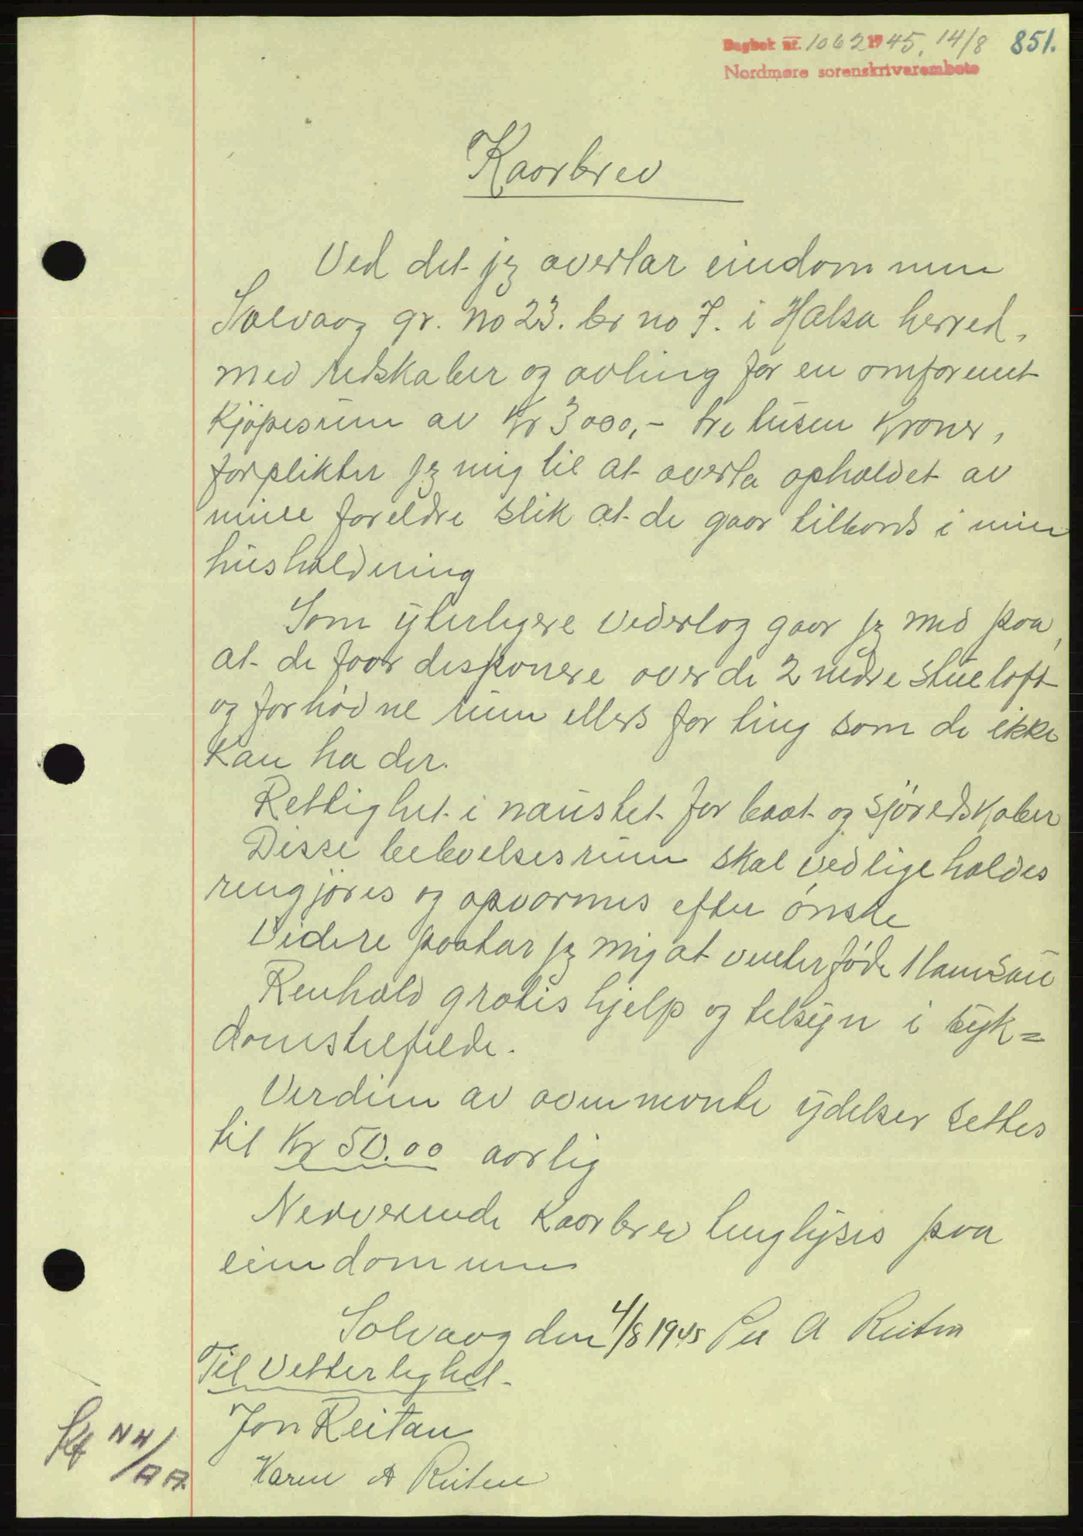 Dagbok nr. 1062 1945, 14/8 851.
Nordmøre sorenskrivarembete
Kaarbrev
Ved det jeg overtar eiendommen
Solvaag gr. no 23. br no 7. i Halsa herred,
med redskaber og avling for en omforenet
Kjöpesum av Kr 3000,- tre tusen Kroner,
forplikter jeg mig til at overta opholdet av
mine foreldre slik at de gaar tilbords i min
husholdning
Som yterligere vederlag gaar jeg med paa,
at de faar disponere over de 2 nedre stueloft
og forhödne rum ellers for ting som de ikke
Kan ha der.
Rettighet i naustet for baat og sjöredskaber
Disse bebvelsesrum skal vedligeholdes
rengjöres og opvarmes efter önske
Videre paatar jeg mig at vinterföde 1 lamsau
Renhold gratis hjelp og tilsyn i syk=
domstilfelde.
Verdien av ovennevnte ydelser settes
til Kr 50.00 aarlig
Nerverende Kaarbrev tinglyses paa
eiendommen
Solvaag den 4/8 1945 Per A Reiten
Til Vitterlighet.
Jon Reitan
Karen A Reiten
NH/AA.